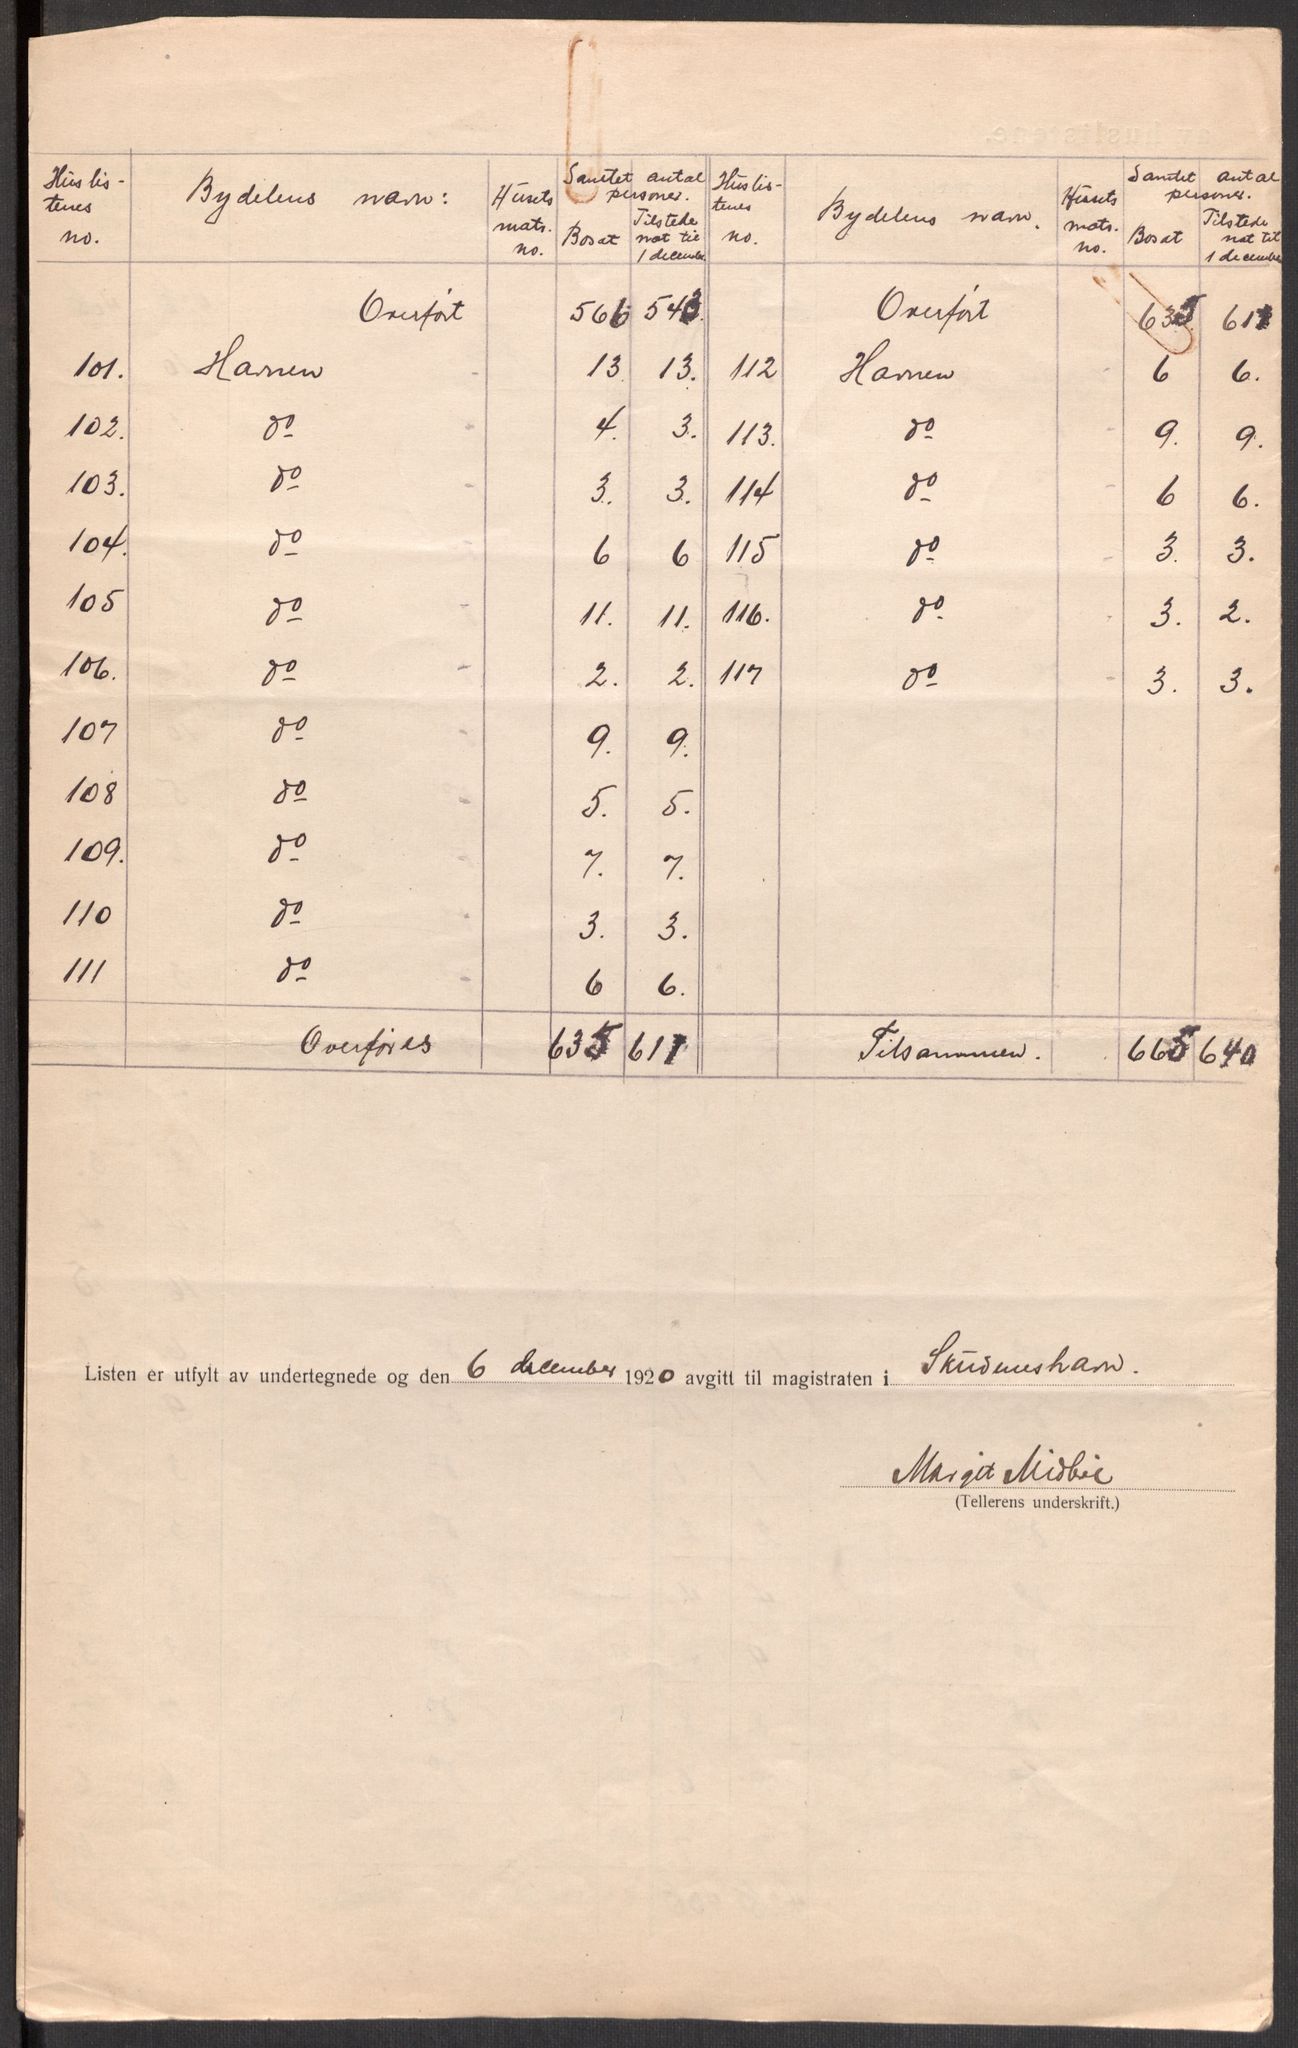 Huslis- Bydelens navn: Husets Samlet antal Huslis- Bydelens navn. Husets Samlet antal
tenes mats. personer. tenes mats. personer.
no. no. Bosat Tilstede no. no. Bosat Tilstede
nat til nat til
1 december 1 december
Overført 566 543. Overført 635 611
101. Havnen - 13 13. 112 Havnen 6 6.
102. do - 4. 3. 113. do - 9. 9.
103. do - 3. 3. 114 do - 6 6.
104. do - 6 6 115 do - 3. 3.
105 do - 11. 11. 116. do - 3. 2.
106. do - 2. 2. 117 do - 3. 3.
107 do - 9. 9.
108 do - 5. 5.
109. do - 7. 7.
110 do - 3. 3.
111 do - 6 6.
Overføres 635 611 Tilsammen. 665 640
Listen er utfylt av undertegnede og den 6 december 1920 avgitt til magistraten i Skudeneshavn.
Margit Midbøe
(Tellerens underskrift.)